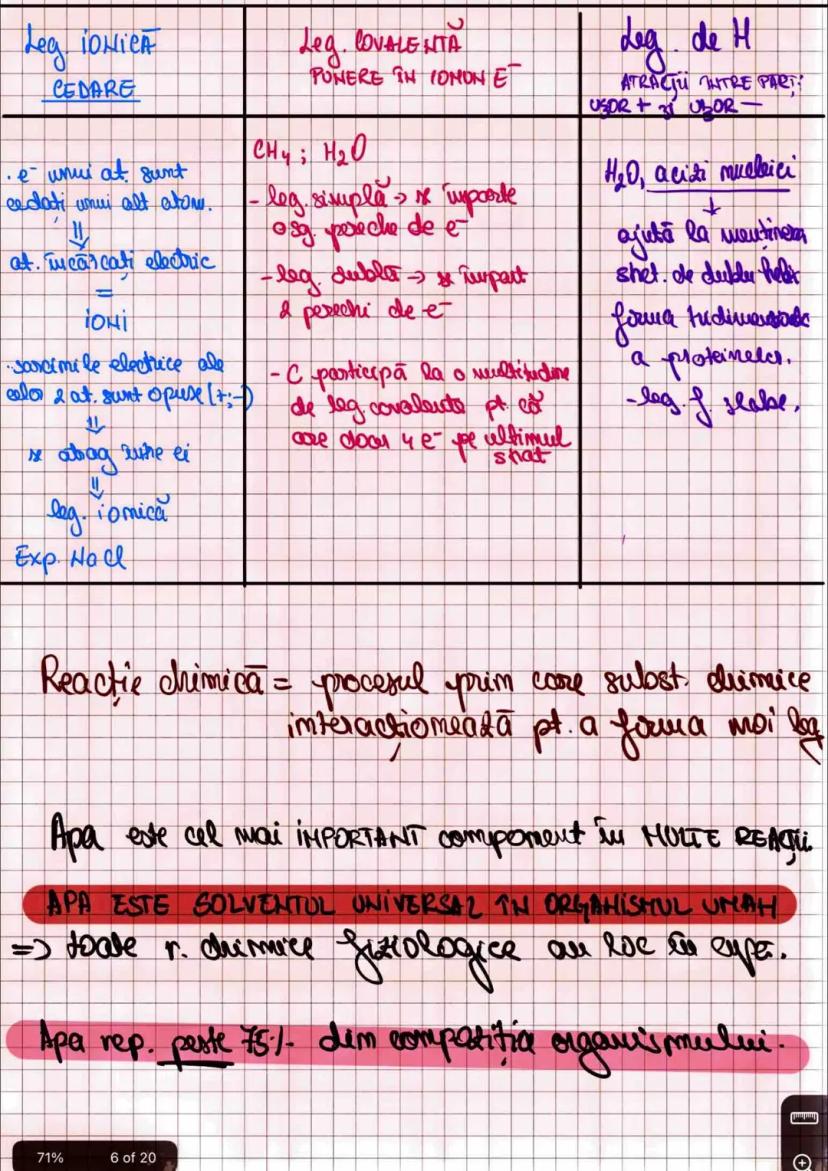 Leg. IONICĂ
CEDARE
. e⁻ unui at. sunt
cedați unui alt atom.
⇓
at. încărcați electric
=
IONI
. sarcinile electrice ale
celor 2 at. sunt opuse (+;-)
⇓
se atrag între ei
⇓
leg. ionică
Exp. NaCl
Leg. COVALENTĂ
PUNERE ÎN COMUN E⁻
CH₄ ; H₂O
- leg. simplă → se împarte
o sg. pereche de e⁻
- leg. dublă → se împart
2 perechi de e⁻
- C participă la o multitudine
de leg. covalente pt. că
are doar 4 e⁻ pe ultimul
strat
Leg. de H
ATRACȚII ÎNTRE PĂRȚI
UȘOR + și UȘOR —
H₂O, acizi nucleici
↓
ajută la menținerea
struct. de dublu helix
forma tridimensională
a proteinelor.
- leg. f. slabe.
Reacție chimică = procesul prin care subst. chimice
interacționează pt. a forma noi leg
Apa este cel mai IMPORTANT component în MULTE REACȚII.
APA ESTE SOLVENTUL UNIVERSAL ÎN ORGANISMUL UMAN
=> toate r. chimice fiziologice au loc în apă.
Apa rep. peste 75% din compoziția organismului.
71% 6 of 20